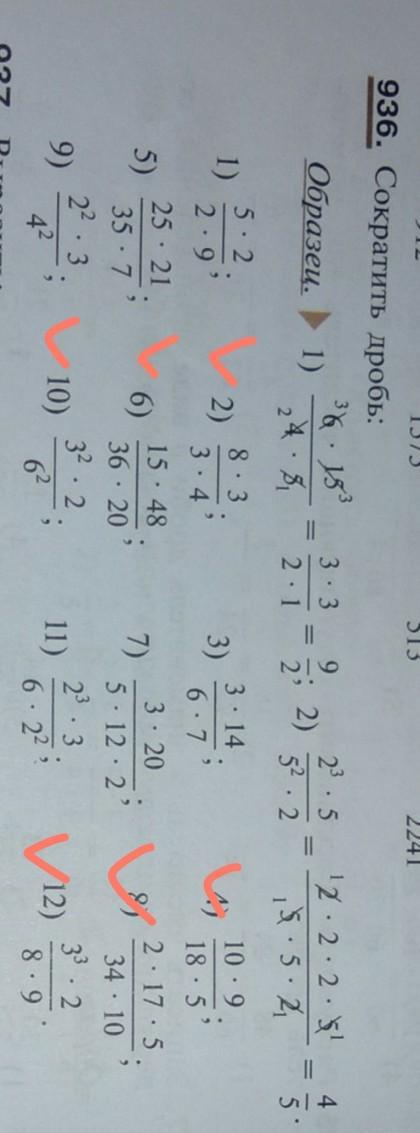 1573 513 2241
936. Сократить дробь:
Образец. ▶ 1) (6 · 15)/(4 · 5) = (3 · 3)/(2 · 1) = 9/2; 2) (2³ · 5)/(5² · 2) = (2 · 2 · 2 · 5)/(5 · 5 · 2) = 4/5.
1) (5 · 2)/(2 · 9); 2) (8 · 3)/(3 · 4); 3) (3 · 14)/(6 · 7); 4) (10 · 9)/(18 · 5);
5) (25 · 21)/(35 · 7); 6) (15 · 48)/(36 · 20); 7) (3 · 20)/(5 · 12 · 2); 8) (2 · 17 · 5)/(34 · 10);
9) (2² · 3)/4²; 10) (3² · 2)/6²; 11) (2³ · 3)/(6 · 2²); 12) (3³ · 2)/(8 · 9).
937.